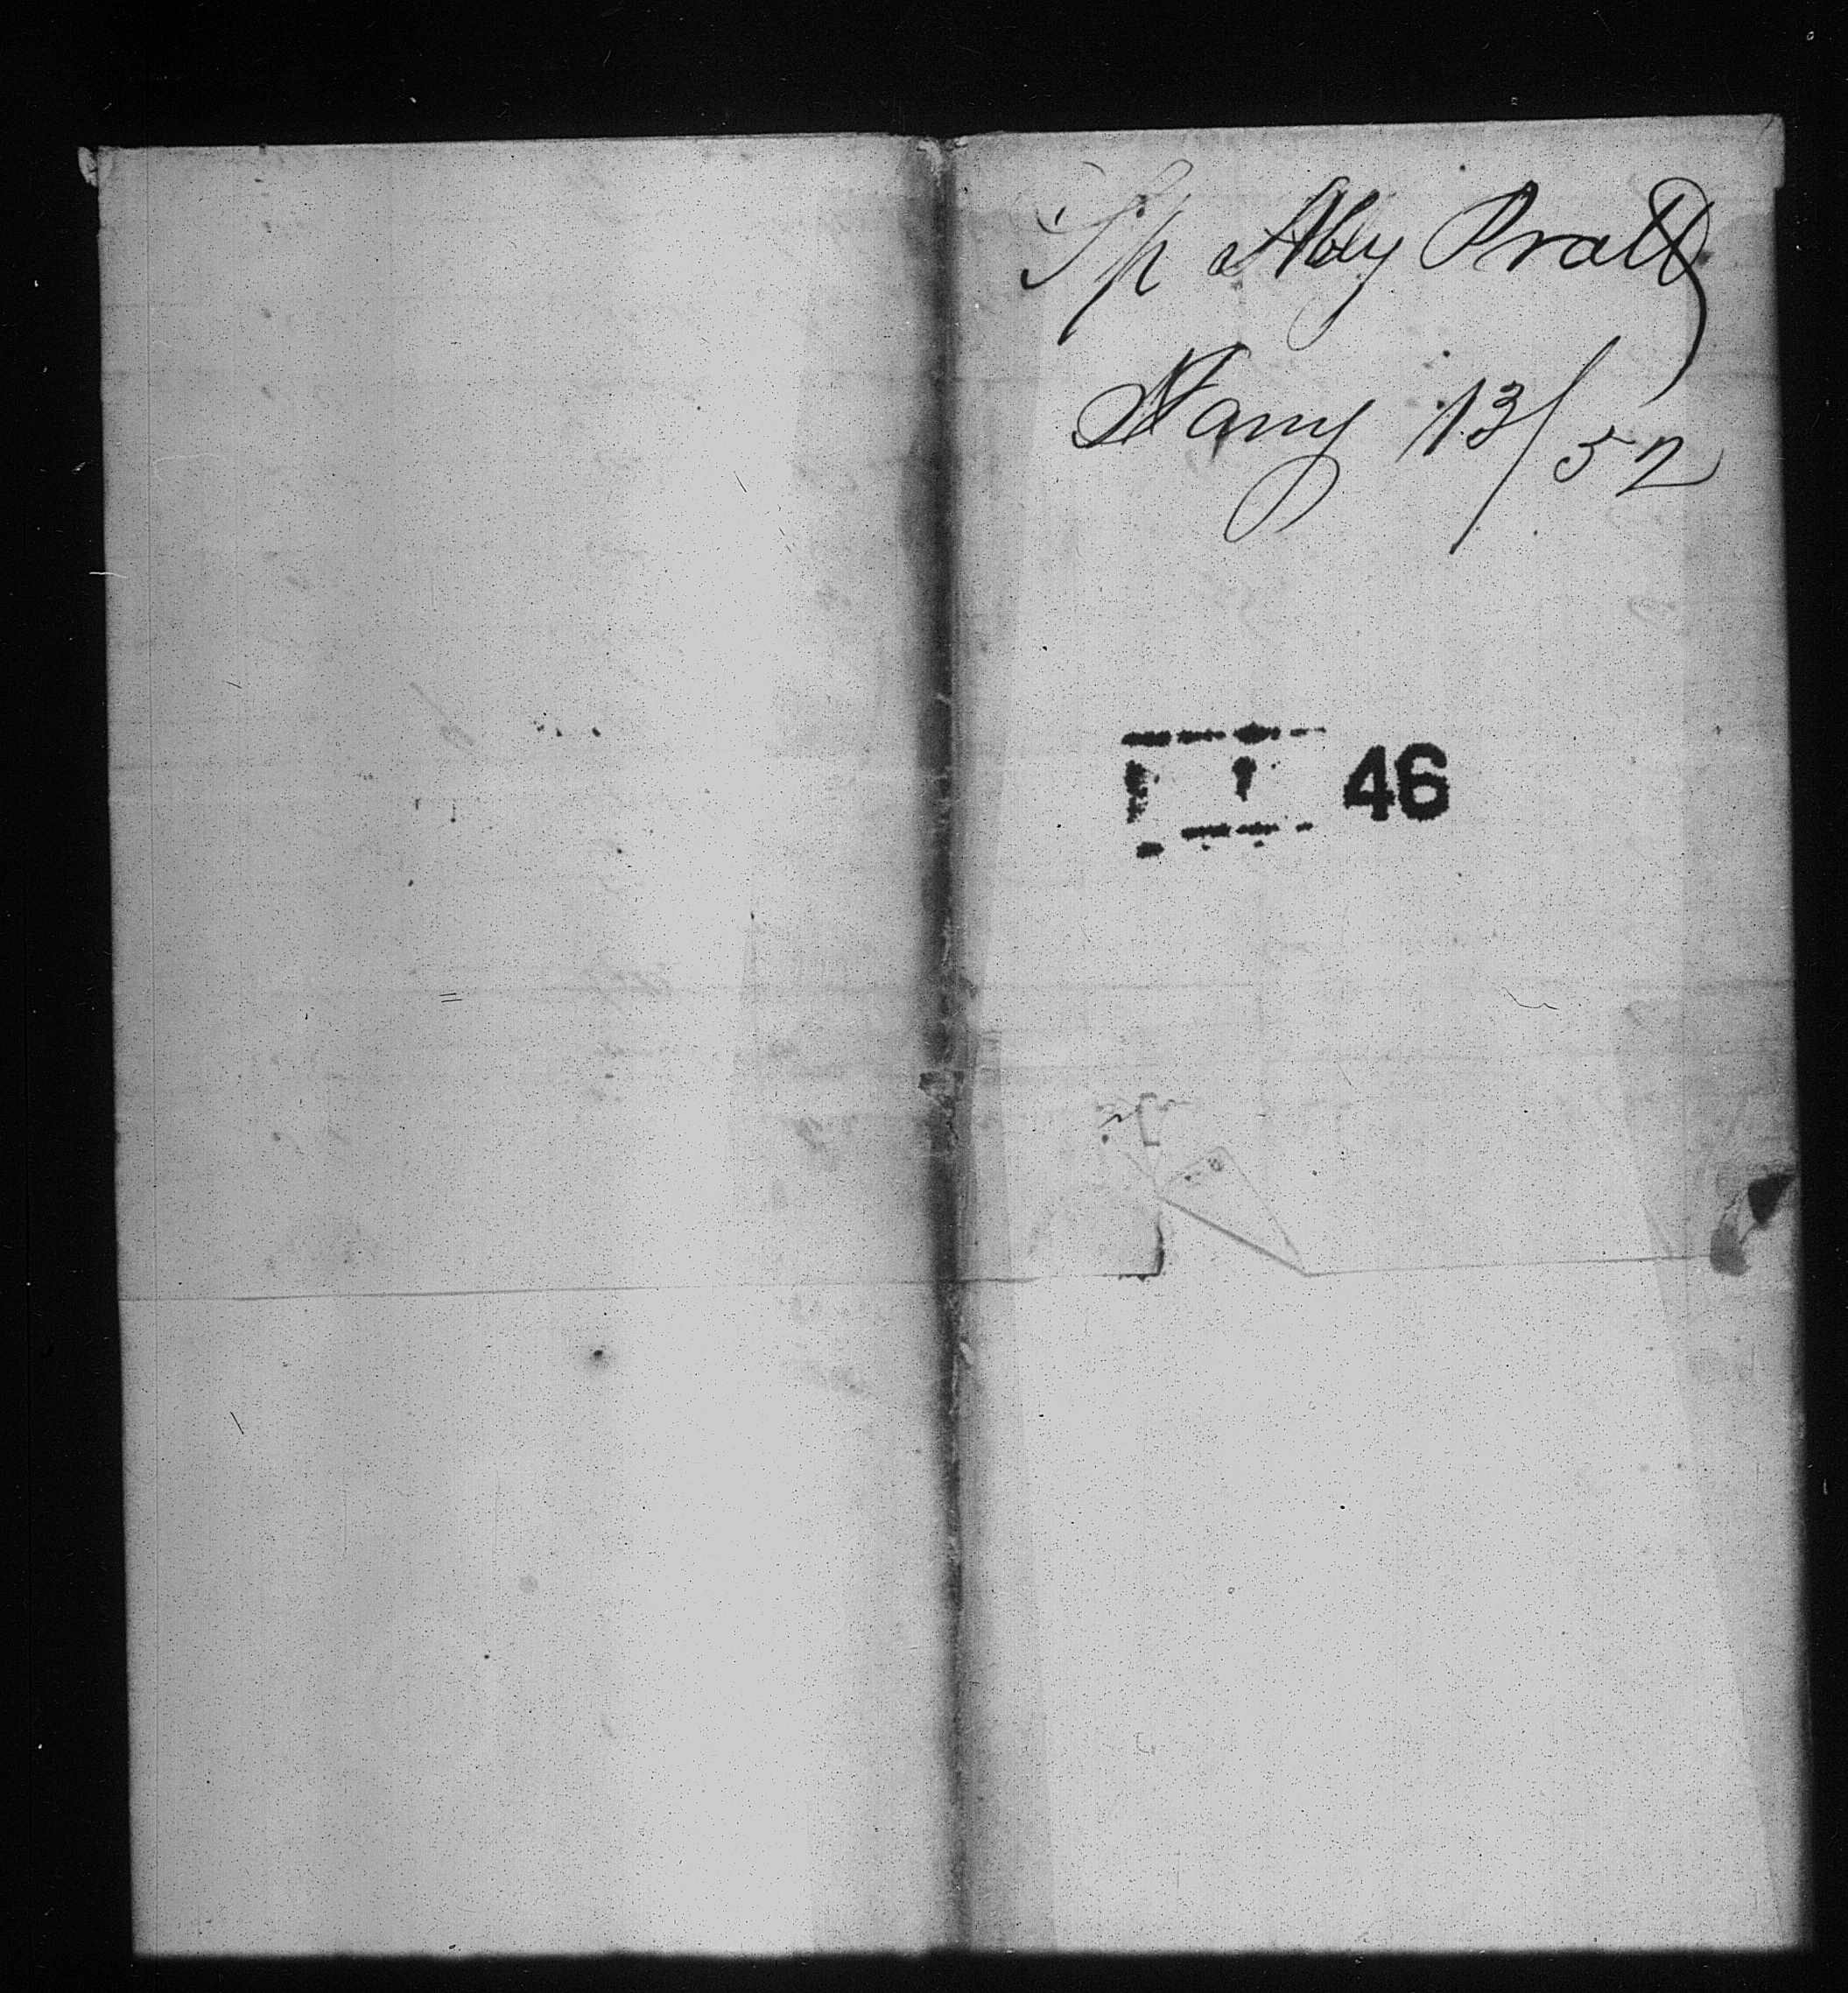 Sp Aby Pratt
Jany 13/52
46